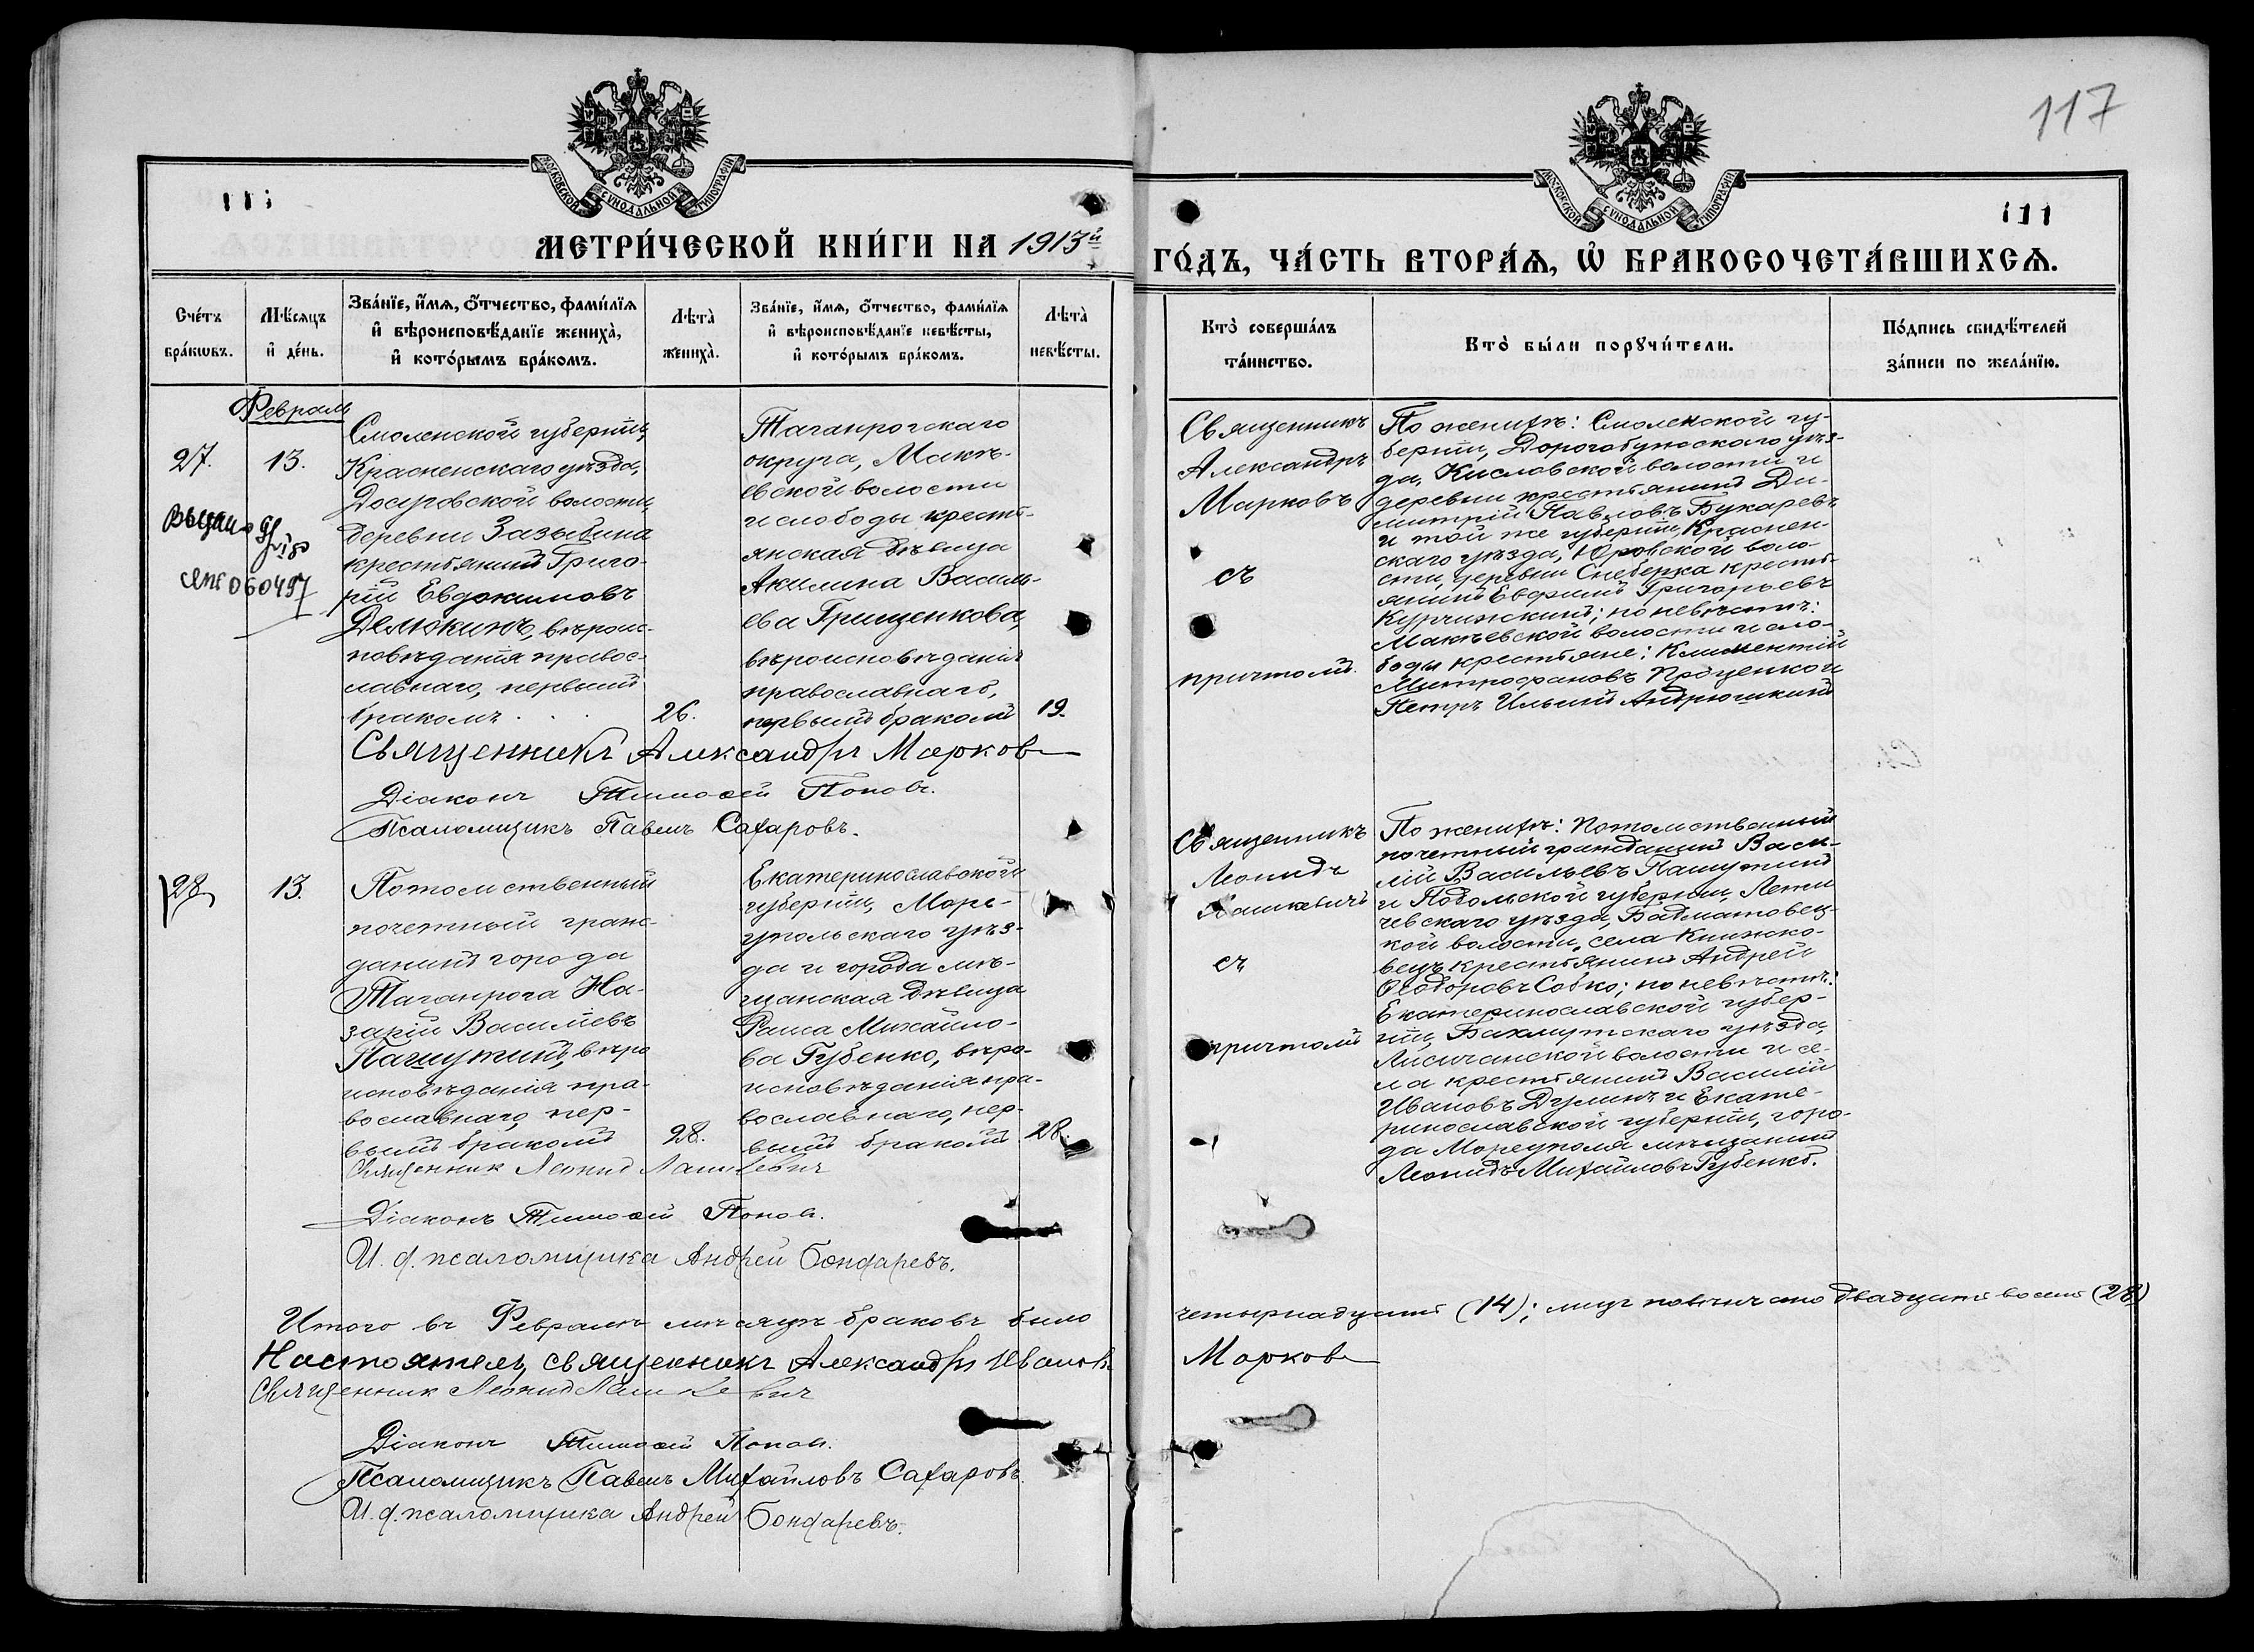 117
МОСКОВСКОЙ СУНОДАЛЬНОЙ ТИПОГРАФІИ
МОСКОВСКОЙ СУНОДАЛЬНОЙ ТИПОГРАФІИ
МЕТРИ́ЧЕСКОЙ КНИ́ГИ НА 1913й
ГО́ДЪ, ЧА́СТЬ ВТОРА́Ѧ, Ѡ҆ БРАКОСОЧЕТА́ВШИХСѦ.
Сче́тъ бра́кѡвъ.
Мѣ́сѧцъ и҆ де́нь.
Зва́нїе, и҆́мѧ, ѻ҆́тчество, фами́лїѧ
и҆ вѣроисповѣ́данїе жениха̀,
и҆ кото́рымъ бра́комъ.
Лѣта̀ жениха̀.
Зва́нїе, и҆́мѧ, ѻ҆́тчество, фами́лїѧ
и҆ вѣроисповѣ́данїе невѣ́сты,
и҆ кото́рымъ бра́комъ.
Лѣта̀ невѣ́сты.
Кто̀ соверша́лъ та́инство.
Кто̀ бы́ли порꙋчи́тели.
По́дпись свидѣ́телей за́писи по жела́нїю.
Февраль
27.
13.
060497
Смоленской губерніи,
Красненскаго уѣзда,
волости,
деревни Зазыбина
крестьянинъ Григо-
рій Евдокимовъ
Демокинъ, вѣроис-
повѣданія правос-
лавнаго, первымъ
бракомъ . . .
26.
Таганрогскаго
округа, Макѣ-
евской волости
и слободы кресть-
янская дѣвица
Акилина Василь-
ева Грищенкова,
вѣроисповѣданія
православнаго,
первымъ бракомъ
19.
Священникъ
Александръ
Марковъ
съ
причтомъ.
По женихѣ: Смоленской гу-
берніи, Дорогобужскаго уѣз-
да, Кисловской волости и
деревни крестьянинъ Ди-
митрій Павловъ Букаревъ
и той же губерніи, Краснен-
скаго уѣзда, Юровской воло-
сти, деревни Снеберка кресть-
янинъ Ефимъ Григорьевъ
по невѣстѣ:
Макѣевской волости и сло-
боды крестьяне: Климентій
Митрофановъ Проценко и
Петръ Ильинъ Андрюшкинъ
Священникъ Александръ Марковъ
Діаконъ Тимоѳей Поповъ.
Псаломщикъ Павелъ Сахаровъ.
28.
13.
Потомственный
почетный граж-
данинъ города
Таганрога На-
зарій Васильевъ
Пашутинъ, вѣро-
исповѣданія пра-
вославнаго, пер-
вымъ бракомъ
28.
Екатеринославской
губерніи, Маріу-
польскаго уѣз-
да и города мѣ-
щанская дѣвица
Раиса Михайло-
ва Губенко, вѣро-
исповѣданія пра-
вославнаго, пер-
вымъ бракомъ
28.
Священникъ
Леонидъ
Лашкевичъ
съ
причтомъ
По женихѣ: Потомственный
почетный гражданинъ Васи-
лій Васильевъ Пашутинъ
и Подольской губерніи, Лети-
чевскаго уѣзда,
кой волости, села Книжко-
вецъ крестьянинъ Андрей
Ѳеодоровъ Собко; по невѣстѣ:
Екатеринославской губер-
ніи, Бахмутскаго уѣзда,
Лисичанской волости и се-
ла крестьянинъ Василій
Ивановъ Дулинъ и Екате-
ринославской губерніи, горо-
да Маріуполя мѣщанинъ
Леонидъ Михайловъ Губенко.
Священникъ Леонид Лашкевич
Діаконъ Тимоѳей Поповъ.
И. д. псаломщика Андрей Бондаревъ.
Итого въ Февралѣ мѣсяцѣ браковъ было четырнадцать (14); лицъ повѣнчано двадцать восемь (28)
Настоятель, священникъ Александръ Ивановъ Марковъ
Священник Леонид Лашкевич
Діаконъ Тимоѳей Поповъ.
Псаломщикъ Павелъ Михайловъ Сахаровъ.
И. д. псаломщика Андрей Бондаревъ.